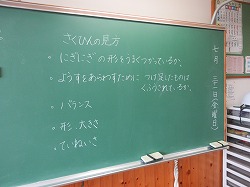 さくひんの見方
・にぎにぎの形をうまくつかっているか。
・ようすをあらわすために つけ足したものは
くふうされているか。
・バランス
・形 大きさ
・ていねいさ
七月 三十一日(金曜日)